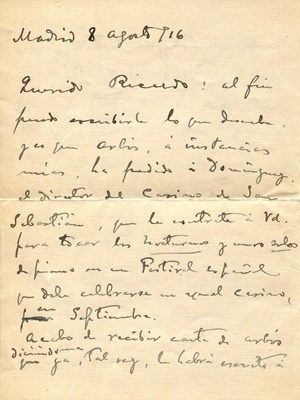 Madrid 8 agosto /16
Querido Ricardo: al fin
puedo escribirle lo que deseaba,
pues que Arbós, á instancias
mías, ha pedido á Domínguez,
el director del Casino de San
Sebastián, que le contrate á Vd.
para tocar los Nocturnos y unos solos
de piano en un Festival español
que debe celebrarse en aquel Casino,
en Septiembre.
Acabo de recibir carta de Arbós
diciéndome
que ya, tal vez, le habrá escrito á